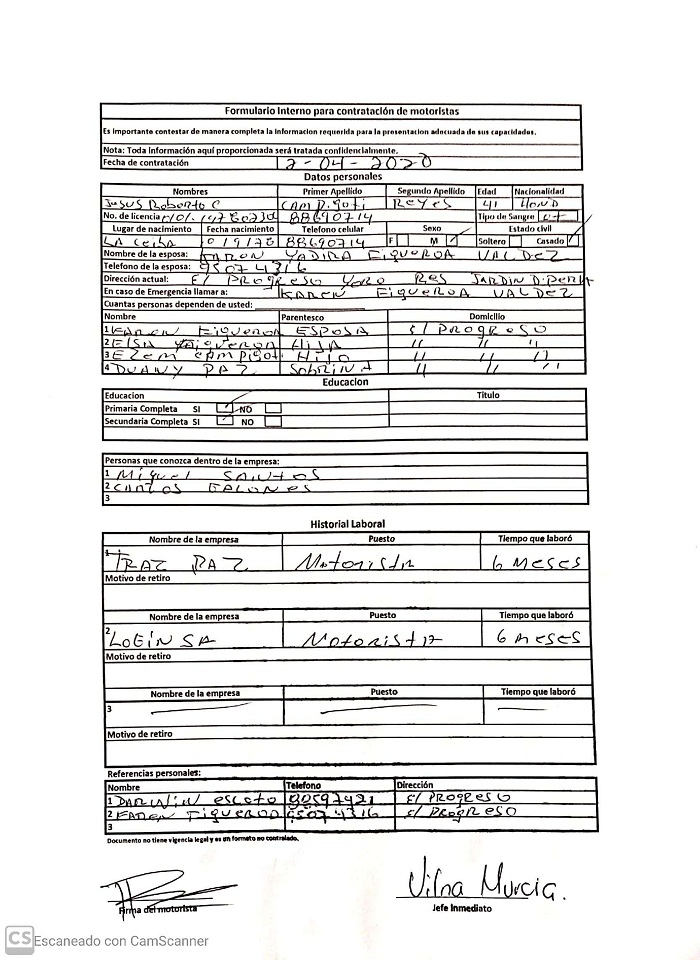 Formulario Interno para contratación de motoristas
Es importante contestar de manera completa la informacion requerida para la presentacion adecuada de sus capacidades.
Nota: Toda información aquí proporcionada será tratada confidencialmente.
Fecha de contratación 2-04-2020
Datos personales
Nombres Primer Apellido Segundo Apellido Edad Nacionalidad
Jesus Roberto C Reyes 41 HOND
No. de licencia 88690714 Tipo de Sangre o+
Lugar de nacimiento Fecha nacimiento Telefono celular Sexo Estado civil
LA Ceiba 88690714 F M Soltero Casado
Nombre de la esposa: KAREN YADIRA FIGUEROA VALDEZ
Telefono de la esposa: 95074316
Dirección actual: El PROGRESO YORO RES JARDIN D.
En caso de Emergencia llamar a: KAREN FIGUEROA VALDEZ
Cuantas personas dependen de usted:
Nombre Parentesco Domicilio
1 KAREN FIGUEROA ESPOSA El PROGRESO
2 HIJA " " "
3 HIJO " " "
4 DUANY PAZ SobRINA " " "
Educacion
Educacion Titulo
Primaria Completa SI NO
Secundaria Completa SI NO
Personas que conozca dentro de la empresa:
1 Miguel SANTOS
2 CARLOS
3
Historial Laboral
Nombre de la empresa Puesto Tiempo que laboró
1 PAZ Motorista 6 MESES
Motivo de retiro
Nombre de la empresa Puesto Tiempo que laboró
2 LOGIN SA MOTORISTA 6 MESES
Motivo de retiro
Nombre de la empresa Puesto Tiempo que laboró
3
Motivo de retiro
Referencias personales:
Nombre Telefono Dirección
1 DARWIN escoto El PROGRESO
2 KAREN FIGUEROA 95074316 El PROGRESO
3
Documento no tiene vigencia legal y es un formato no controlado.
Vilna Murcia.
Firma del motorista Jefe Inmediato
CS Escaneado con CamScanner